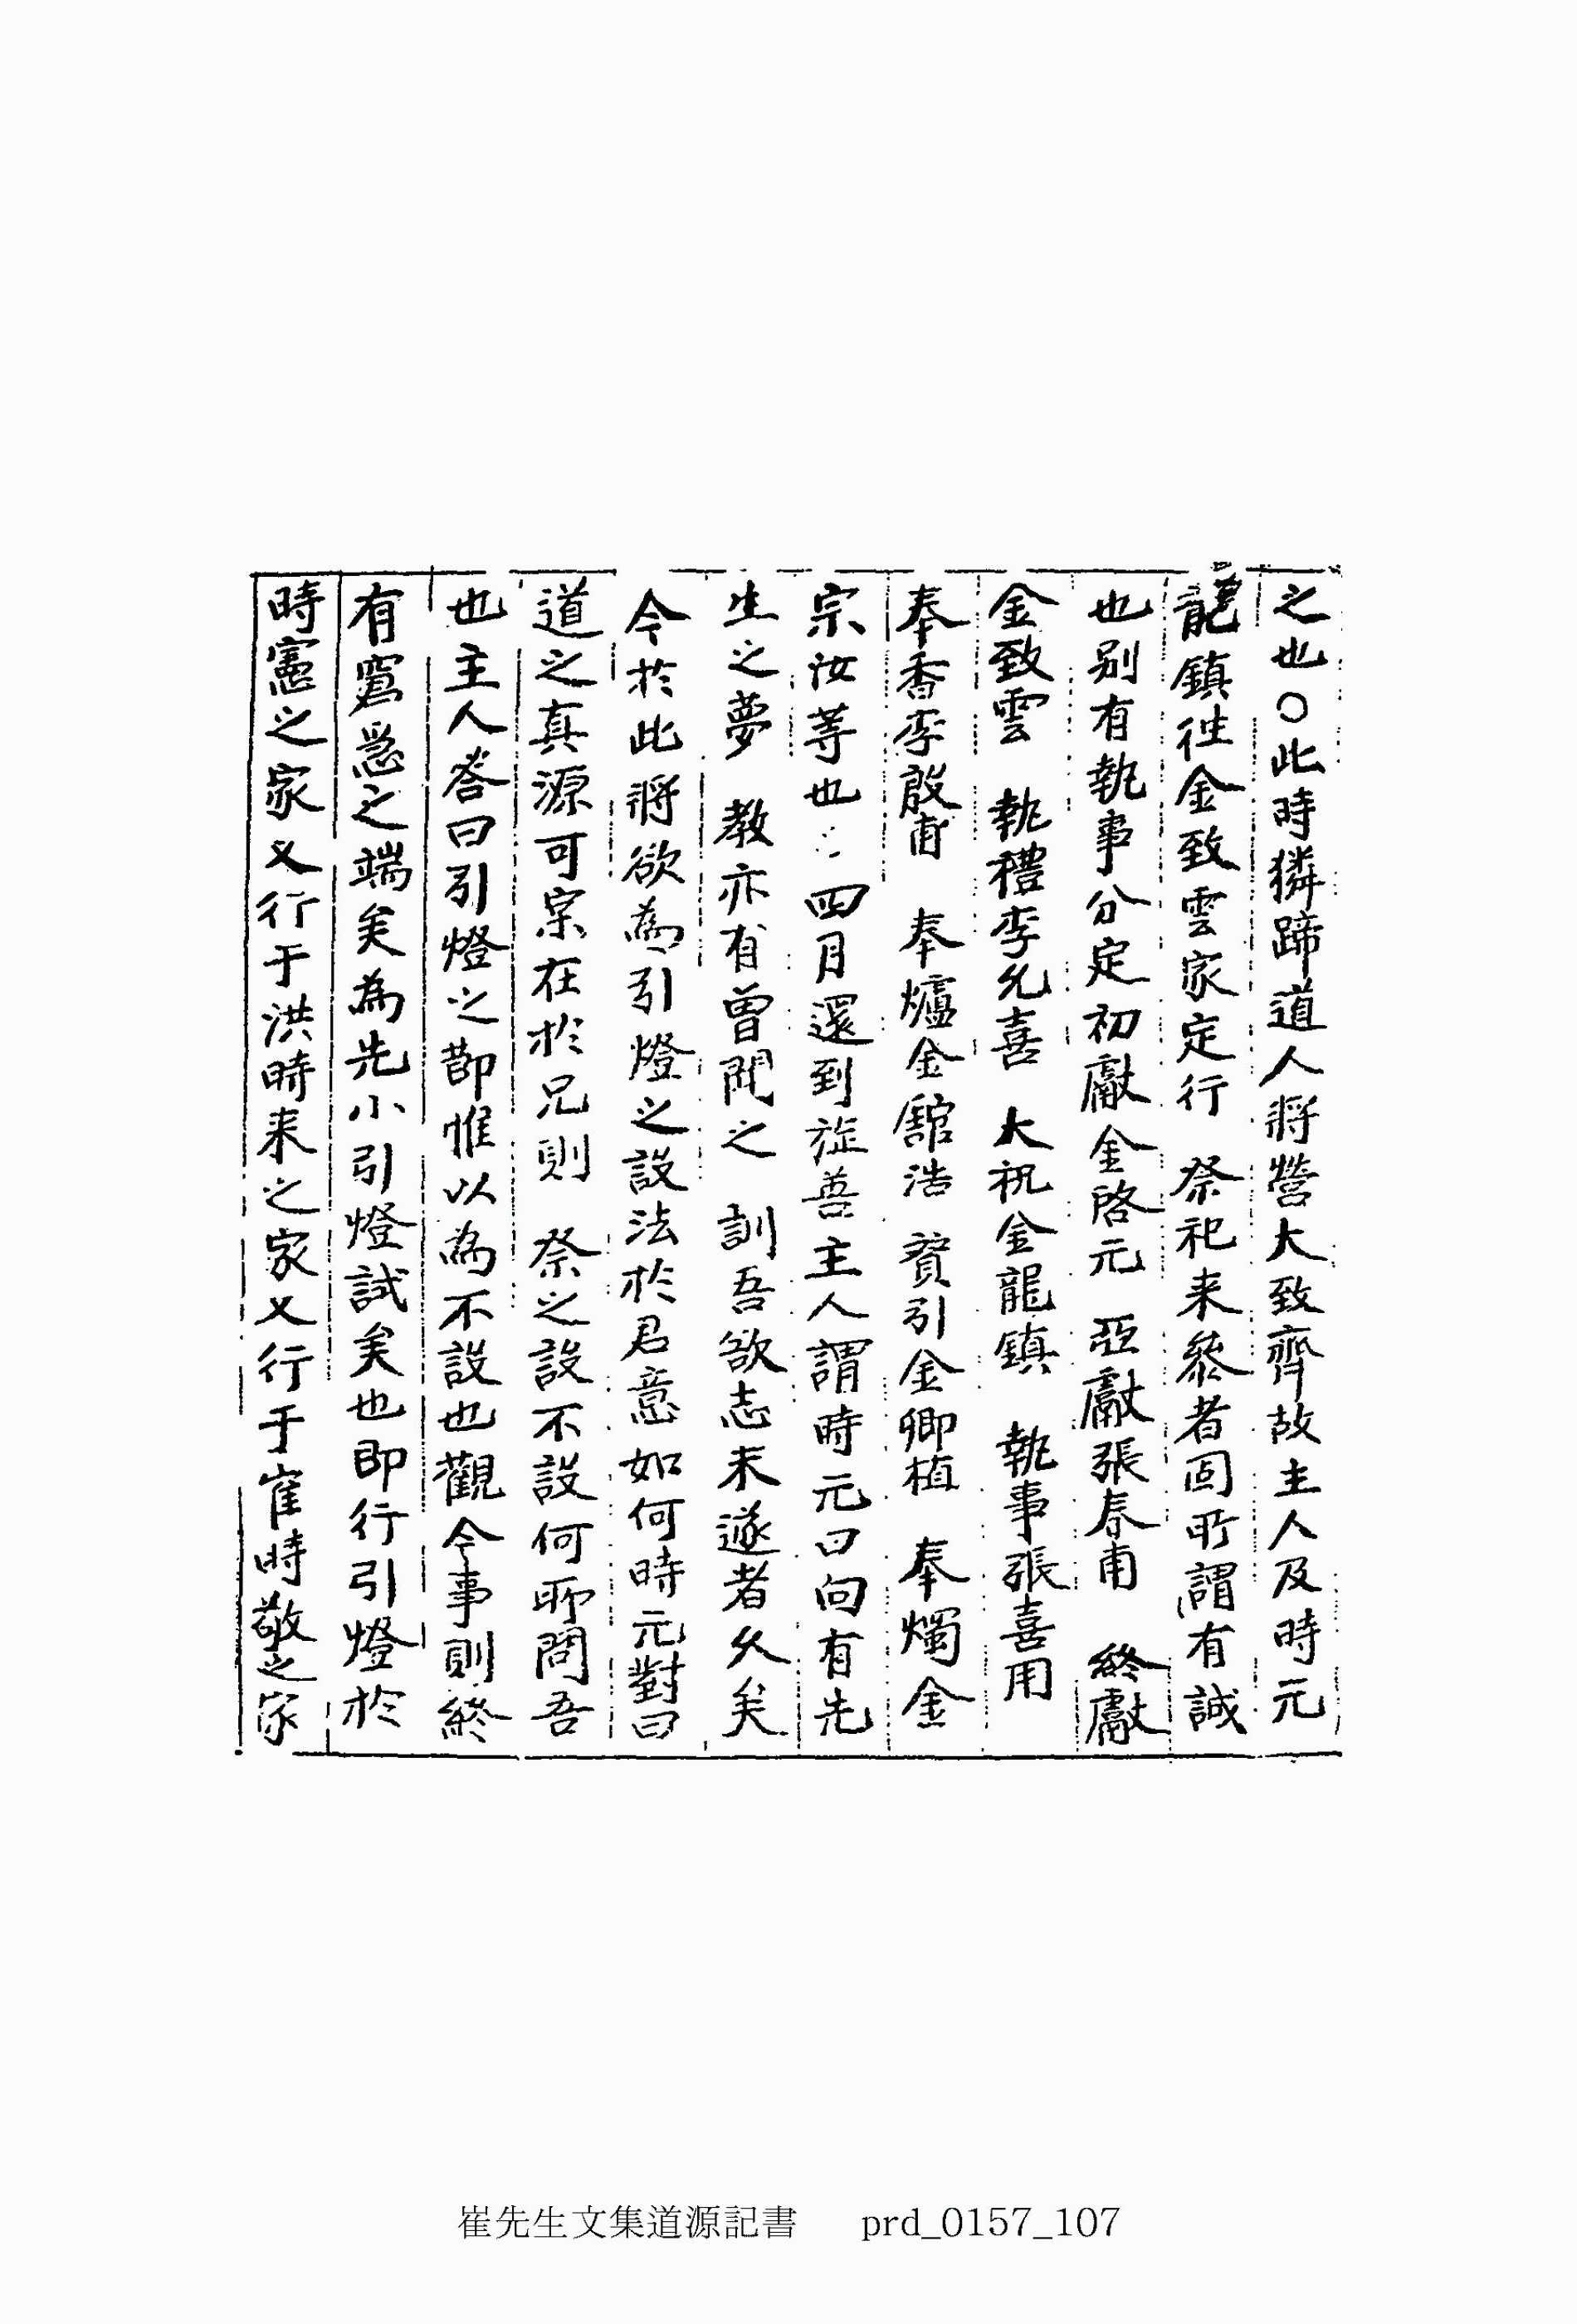 之也○此時獜蹄道人將營大致齊故主人及時元
龍鎮徃金致雲家定行 祭祀来叅者固所謂有誠
也別有執事分定初獻金啓元 亞獻張春甫 終獻
金致雲 執禮李允喜 大祝金龍鎮 執事張喜用
奉香李殷甫 奉爐金舘浩 賛引金卿植 奉燭金
宗汝等也 四月還到旌善主人謂時元曰向有先
生之夢 教亦有曽聞之 訓吾欲志未遂者久矣
今於此將欲為引燈之設法於君意如何時元對曰
道之真源可宗在於兄則 祭之設不設何聊問吾
也主人答曰引燈之節惟以為不設也觀今事則終
有窘急之端矣為先小引燈試矣也即行引燈於
時憲之家又行于洪時来之家又行于崔時敬之家
崔先生文集道源記書 prd_0157_107